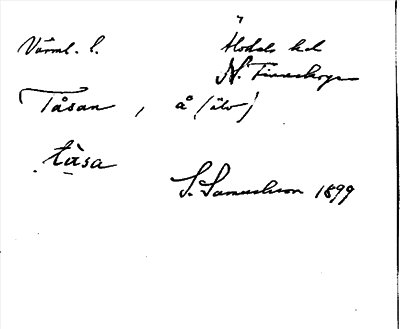 Värml. l. Älvdals hd
N. Finnskoga
Tåsan, å (älv)
tåsa
S. Samuelsson 1899